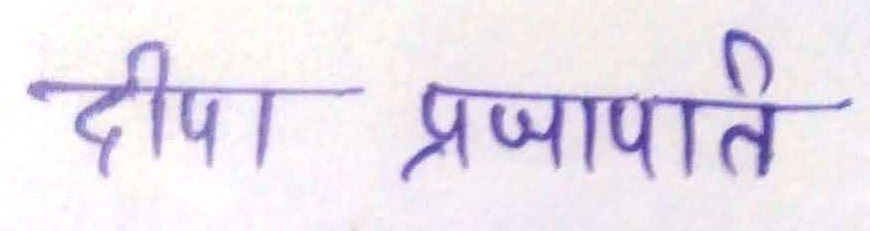 दीपा प्रजापति